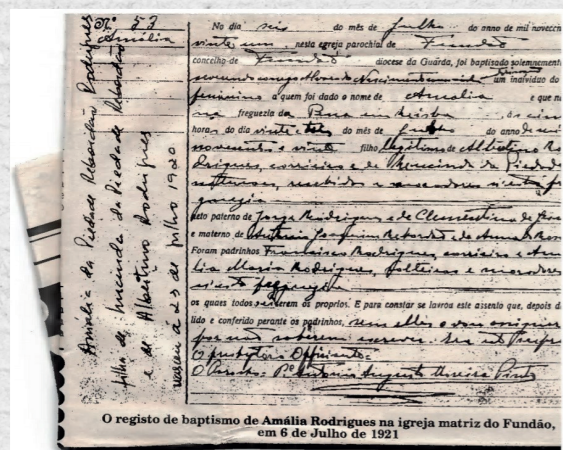 Nº 53
Amália
Amália da Piedade Rebordão Rodrigues
filha de Lucinda da Piedade Rebordão
e de Albertino Rodrigues
nasceu à 23 de Julho 1920
No dia seis do mês de Julho do ano de mil novecen
vinte um nesta egreja parochial de Fundão
concelho de Fundão diocese da Guarda, foi baptisado solemnement
um individuo do
feminino a quem foi dado o nome de Amalia e que n
na freguezia da Pena em Lisboa ás cin
horas do dia vinte e tres do mês de Julho do anno de mil
novecentos e vinte filho legitimo de Albertino Ro
drigues, correeiro e de Lucinda da Piedade
recebidos e moradores nesta fre
guezia
neto paterno de Jorge Rodrigues e de Clementina de
e materno de Antonio Joaquim Rebordão e de Anna do Ros
Foram padrinhos Francisco Rodrigues, correeiro e Ama
lia Maria Rodrigues, solteiros e moradores
nesta freguezia
os quaes todos sei serem os proprios. E para constar se lavrou este assento que, depois d
lido e conferido perante os padrinhos, sem elles o vou assignar
por não saberem escrever.
O presbitero Officiante=
O Parocho: Pe. Antonio Augusto Pinto
O registo de baptismo de Amália Rodrigues na igreja matriz do Fundão,
em 6 de Julho de 1921